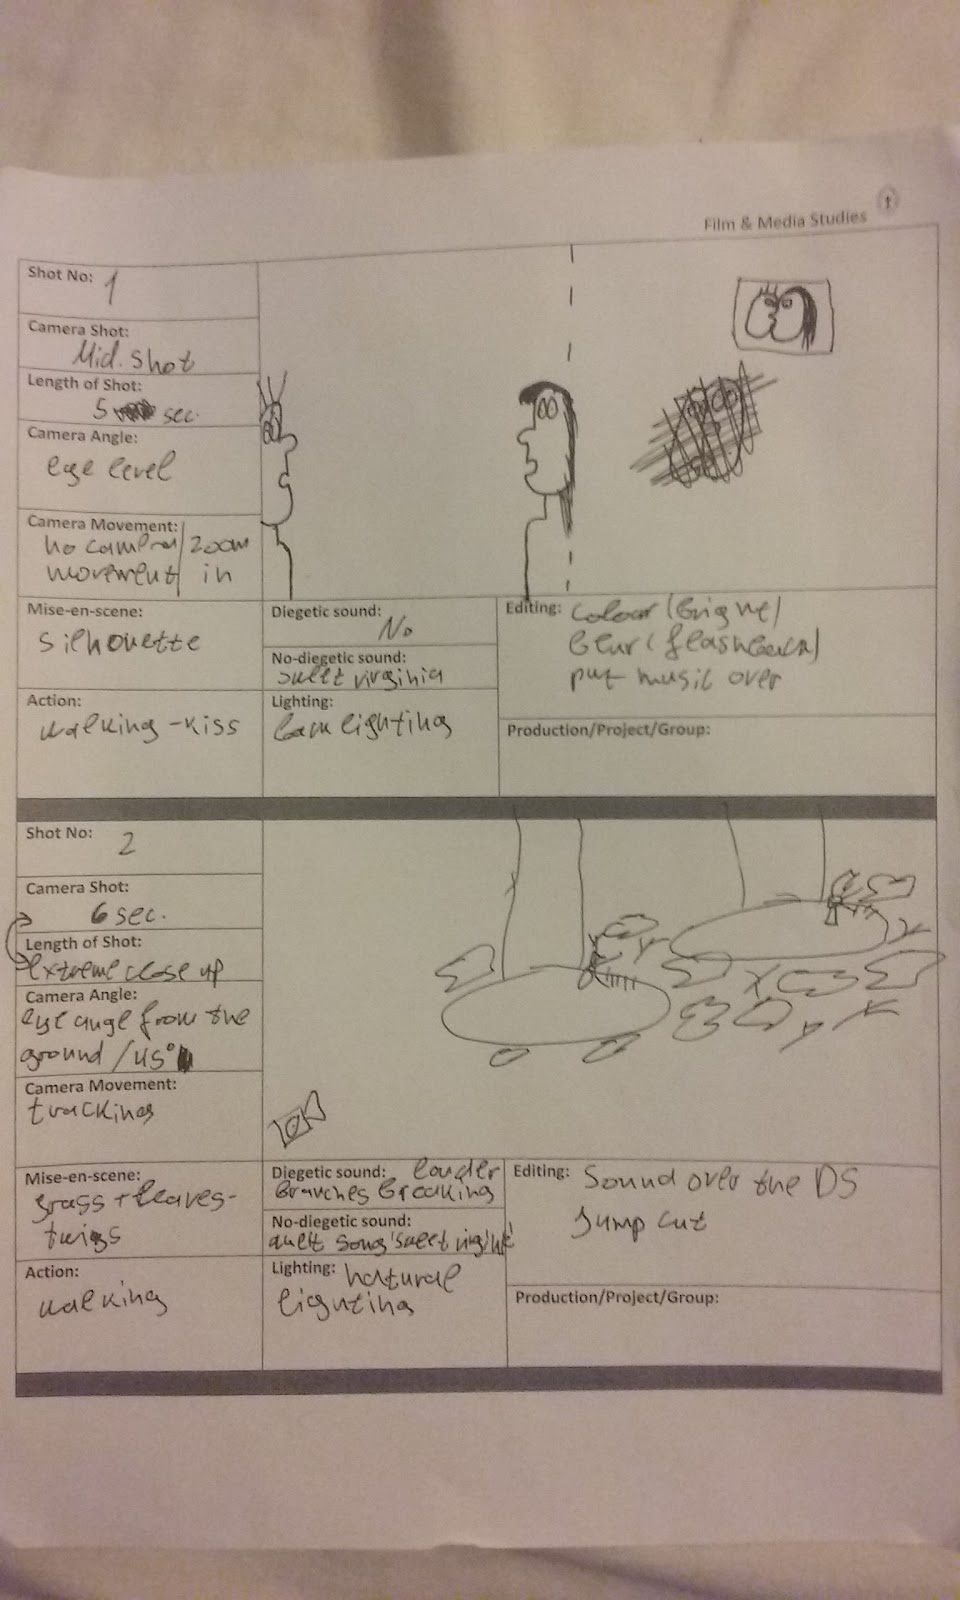 Film & Media Studies
Shot No: 1
Camera Shot:
Mid. Shot
Length of Shot:
5 sec.
Camera Angle:
eye level
Camera Movement:
no camera / zoom
movement / in
Mise-en-scene:
Silhouette
Action:
walking - kiss
Diegetic sound:
No
No-diegetic sound:
sweet virginia
Lighting:
Editing: colour (bright)
Blur (flashback)
put music over
Production/Project/Group:
Shot No: 2
Camera Shot:
6 sec.
Length of Shot:
extreme close up
Camera Angle:
eye ange from the
ground /
Camera Movement:
tracking
Mise-en-scene:
grass + leaves-
twigs
Action:
walking
Diegetic sound: louder
branches breaking
No-diegetic sound:
song 'sweet
Lighting: natural
lighting
Editing: Sound over the DS
Jump cut
Production/Project/Group: